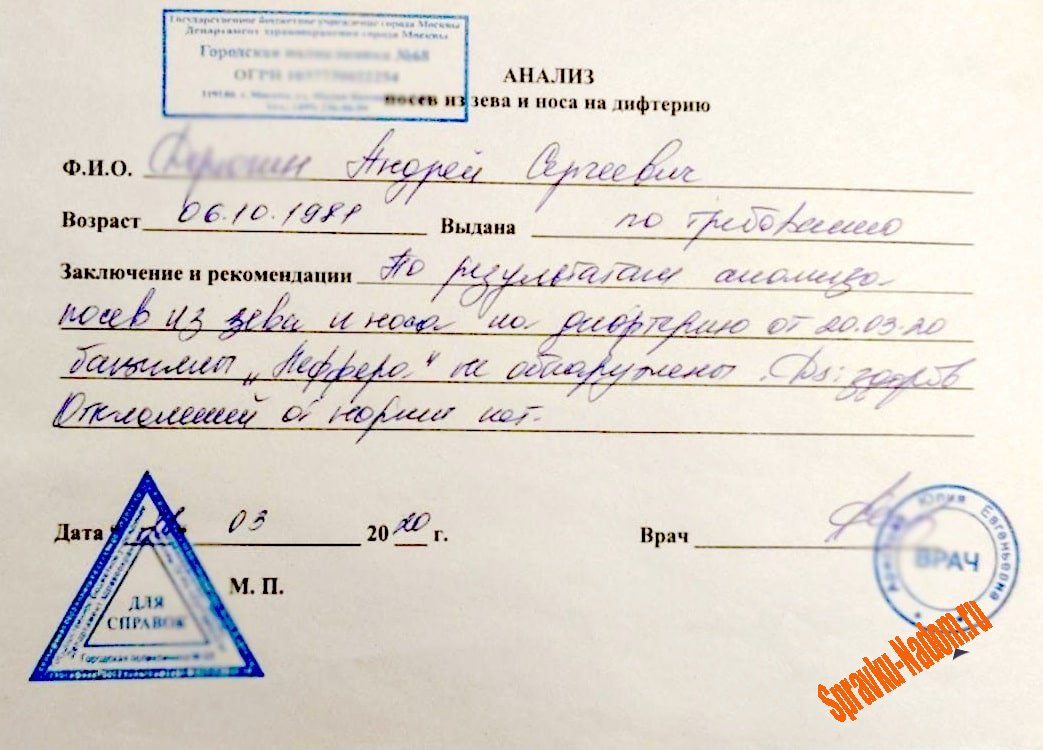 Государственное бюджетное учреждение города Москвы
Департамент здравоохранения города Москвы
Городская поликлиника №68
ОГРН
АНАЛИЗ
посев из зева и носа на дифтерию
Ф.И.О. Андрей Сергеевич
Возраст 06.10.1981 Выдана по требованию
Заключение и рекомендации По результатам анализа
посев из зева и носа на дифтерию от 20.03.20
бациллы „Леффера“ не обнаружены. Ds: здоров
Отклонений от нормы нет.
Дата 03 2020 г. Врач
М. П.
ДЛЯ
СПРАВОК
Городская поликлиника
Юлия Евгеньевна
ВРАЧ
Spravku-Nadom.ru